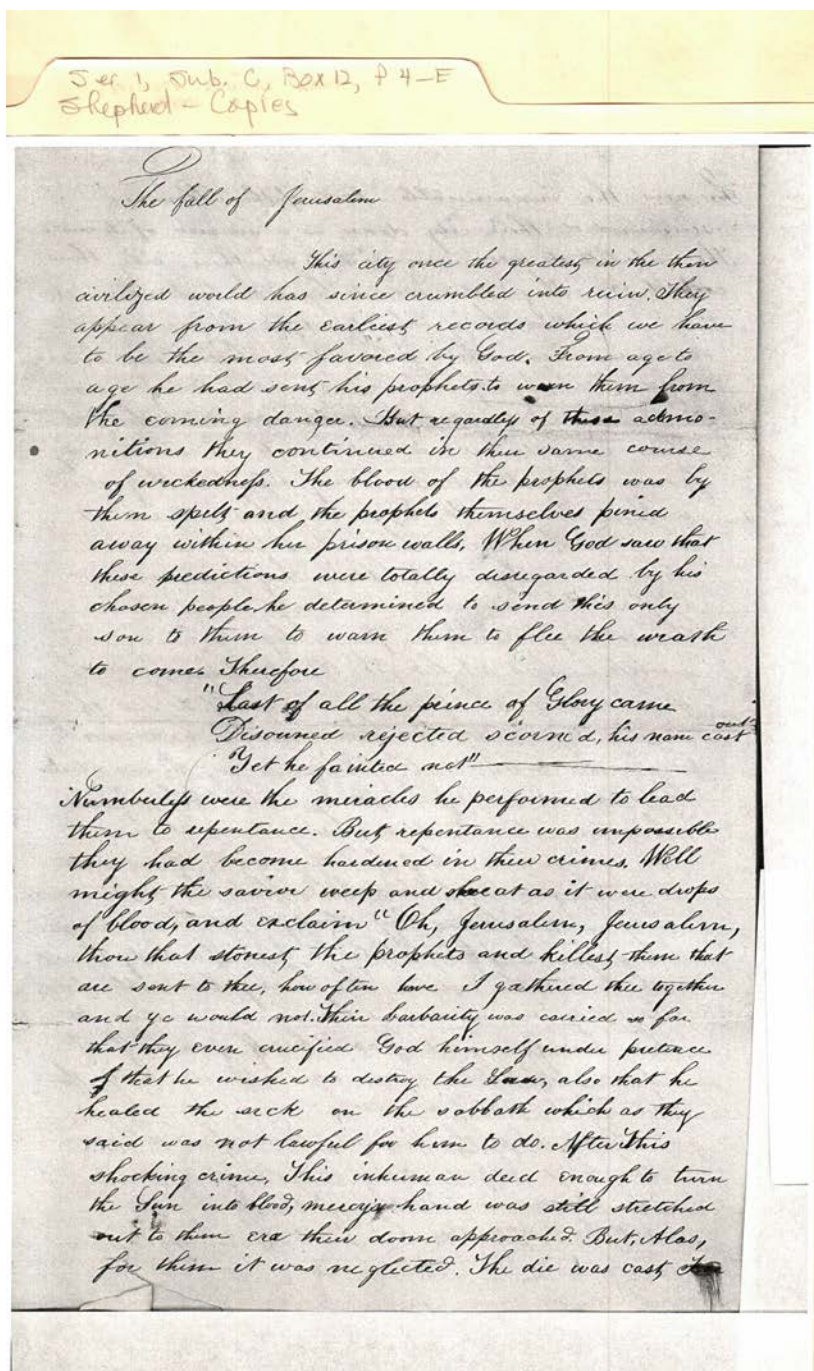 Ser 1, Sub. C, Box 12, P 4-E
Shepherd - Copies
The fall of Jerusalem
This city once the greatest in the then
civilized world has since crumbled into ruin. They
appear from the earliest records which we have
to be the most favored by God. From age to
age he had sent his prophets to warn them from
the coming danger. But regardless of these admo-
nitions they continued in their same course
of wickedness. The blood of the prophets was by
them spelt and the prophets themselves pined
away within her prison walls. When God saw that
these predictions were totally disregarded by his
chosen people he determined to send this only
son to them to warn them to flee the wrath
to come. Therefore
"Last of all the prince of Glory came
Disowned rejected scorn'd, his name cast out
Yet he fainted not"
Numberless were the miracles he performed to lead
them to repentance. But repentance was impossible
they had become hardened in their crimes. Well
might the savior weep and sweat as it were drops
of blood, and exclaim "Oh, Jerusalem, Jerusalem,
thou that stonest the prophets and killest them that
are sent to thee, how often have I gathered thee together
and ye would not. Their barbarity was carried so far
that they even crucified God himself under pretence
that he wished to destroy the Law, also that he
healed the sick on the sabbath which as they
said was not lawful for him to do. After this
shocking crime, This inhuman deed enough to turn
the Sun into blood, mercy's hand was still stretched
out to them ere their doom approached. But, Alas,
for them it was neglected. The die was cast,